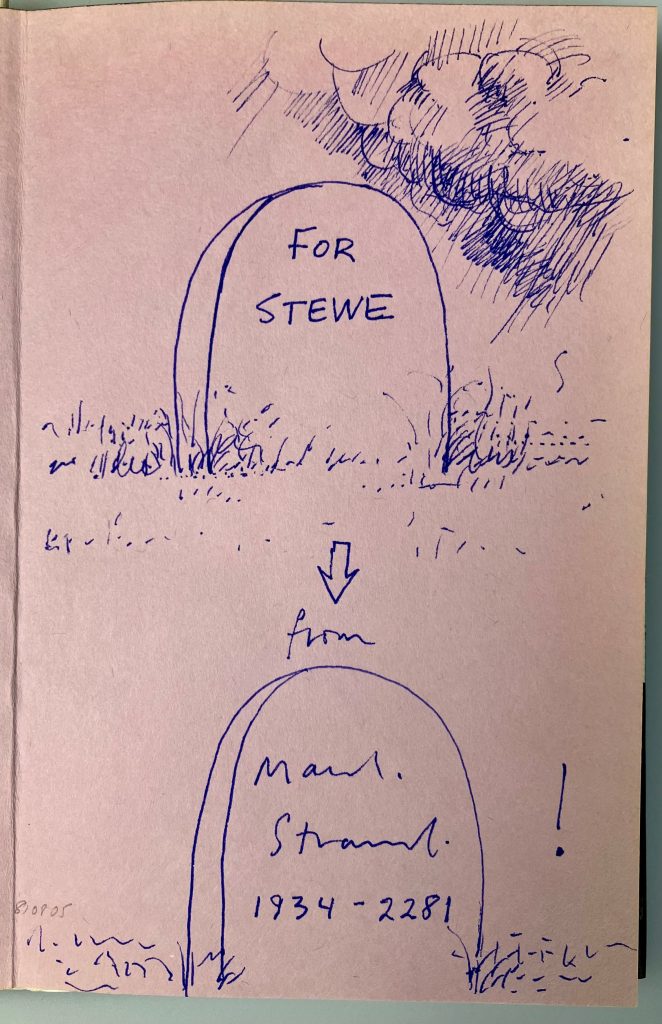 FOR
STEWE
from
Mark.
Strand.
1934 - 2281
!